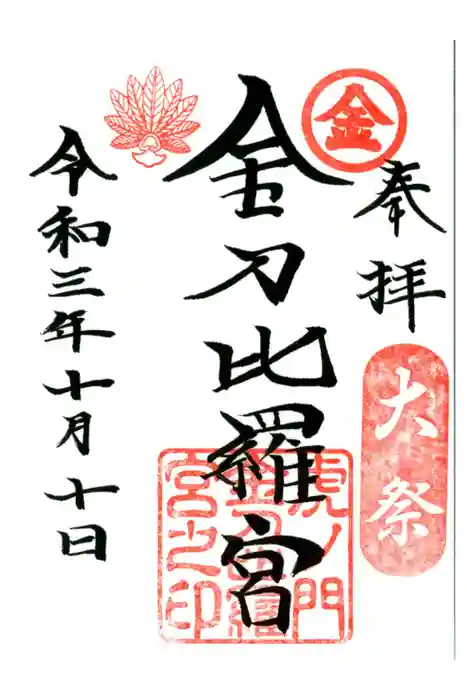 金
奉拝
大祭
金刀比羅宮
虎ノ門
金刀比羅
宮之印
令和三年十月十日